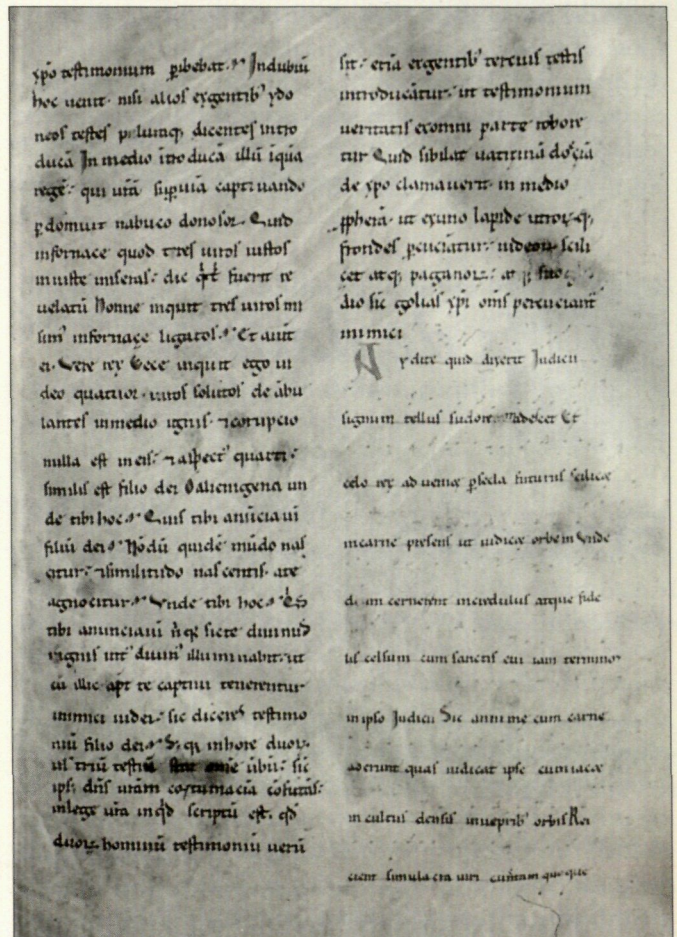 xpo testimonium phibebat. Indubiũ
hoc uenit. nisi alios exgentib' ydo
neos testes pluimiq; dicentes intro
ducã In medio ĩtroducã illũ ĩiqũa
regẽ. qui urã sup uiã captiuando
pdomuit nabuco donosor. Quid
infornace quod tres uiros iustos
iniuste miseras. dic qd t' fuerit re
uelatũ Nonne inquit tres uiros mi
sim' infornace ligatos. Et aiunt
ei. Vere rex Ecce inquit ego ui
deo quatuor. uiros solutos deãbu
lantes inmedio ignis. ⁊corrupcio
nulla est ineis. ⁊aspect' quarti.
similis est filio dei O alienigena un
de tibi hoc. Quis tibi anũciauit
filiũ dei. Nõdũ quidẽ mũdo nas
citur. ⁊similitudo nascentis. ate
agnoscitur. Vnde tibi hoc.
tibi anunciauit ñ q; sic te diuinus
ignis int' diuin' illuminabit. ut
cũ illic apt te captiui tenerentur
inimici iudei. sic diceres testimo
niũ filio dei. S; q; inhore duorꝝ.
ul' triũ testiũ stat omẽ ũbũ. sic
ips. dñs urãm cõtumaciã cõfutãs.
inlege urã inqd scriptũ est. qd
duorꝝ hominũ testimoniũ uerũ
sit. etiã exgentib' tercius testis
introducãtur. ut testimonium
ueritatis exomni parte robore
tur Quid sibilla uaticinãdo etiã
de xpo clamauerit. in medio
pferã. ut exuno lapide utrorꝝq;
frondes pcuciãtur. iudeorꝝ scili
cet atq; paganorꝝ. at q; suo gla
dio sic golias xpi om̃s percuciant'
inimici
Avdite quid dixerit Iudicii
signum tellus sudore madescet Et
celo rex adueniet p secla futurus Scilicet
incarne presens ut iudicet orbem Vnde
deum cernent incredulus atque fide
lis celsum cum sanctis eui iam termino
inipso Iudicii Sic anime cum carne
aderunt quas iudicat ipse cum iacet
in cultus densis inueprib' orbis Rei
cient simulacra uiri cunctam queque